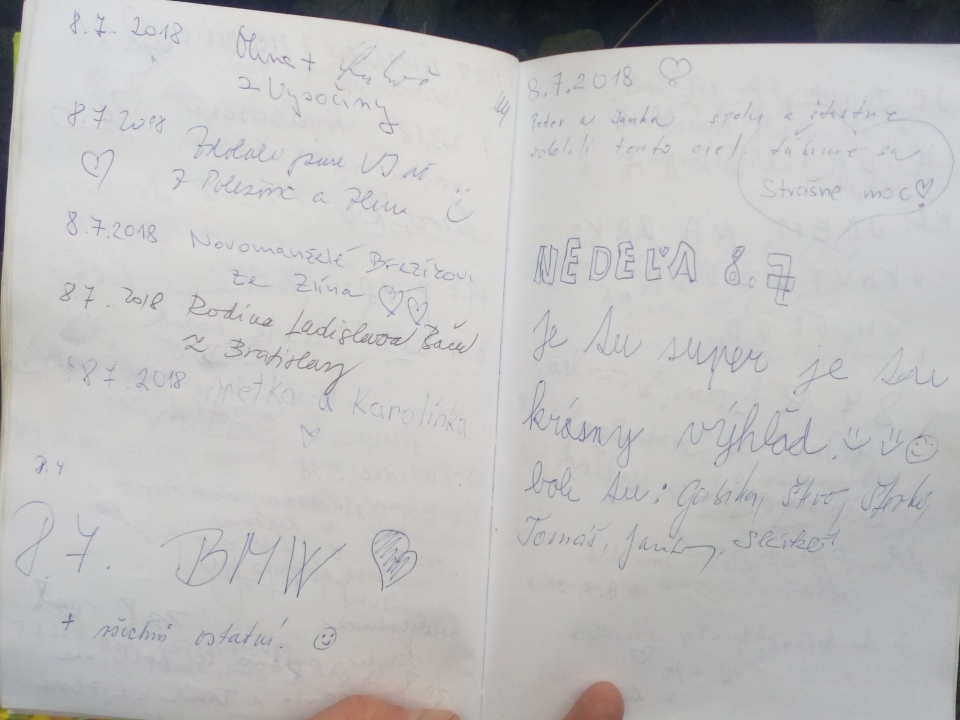 8.7. 2018 Olina +
z Vysočiny
8.7.2018 Zdolali jsme VJ
z a Zlína
8.7.2018 Novomanželé Brezíkovi
ze Zlína
8.7. 2018 Rodina Ladislava
z Bratislavy
8.7.2018 Aretka a Karolínka
8.7. BMW
+ všichni ostatní.
8.7.2018
Peter a Janka spolu a šťastne
zdolili tento cieľ. Ľúbime sa
Strašne moc!
NEDEĽA 8.7
Je tu super je tu
krásny výhľad.
boli tu: Gabika,
Tomáš,